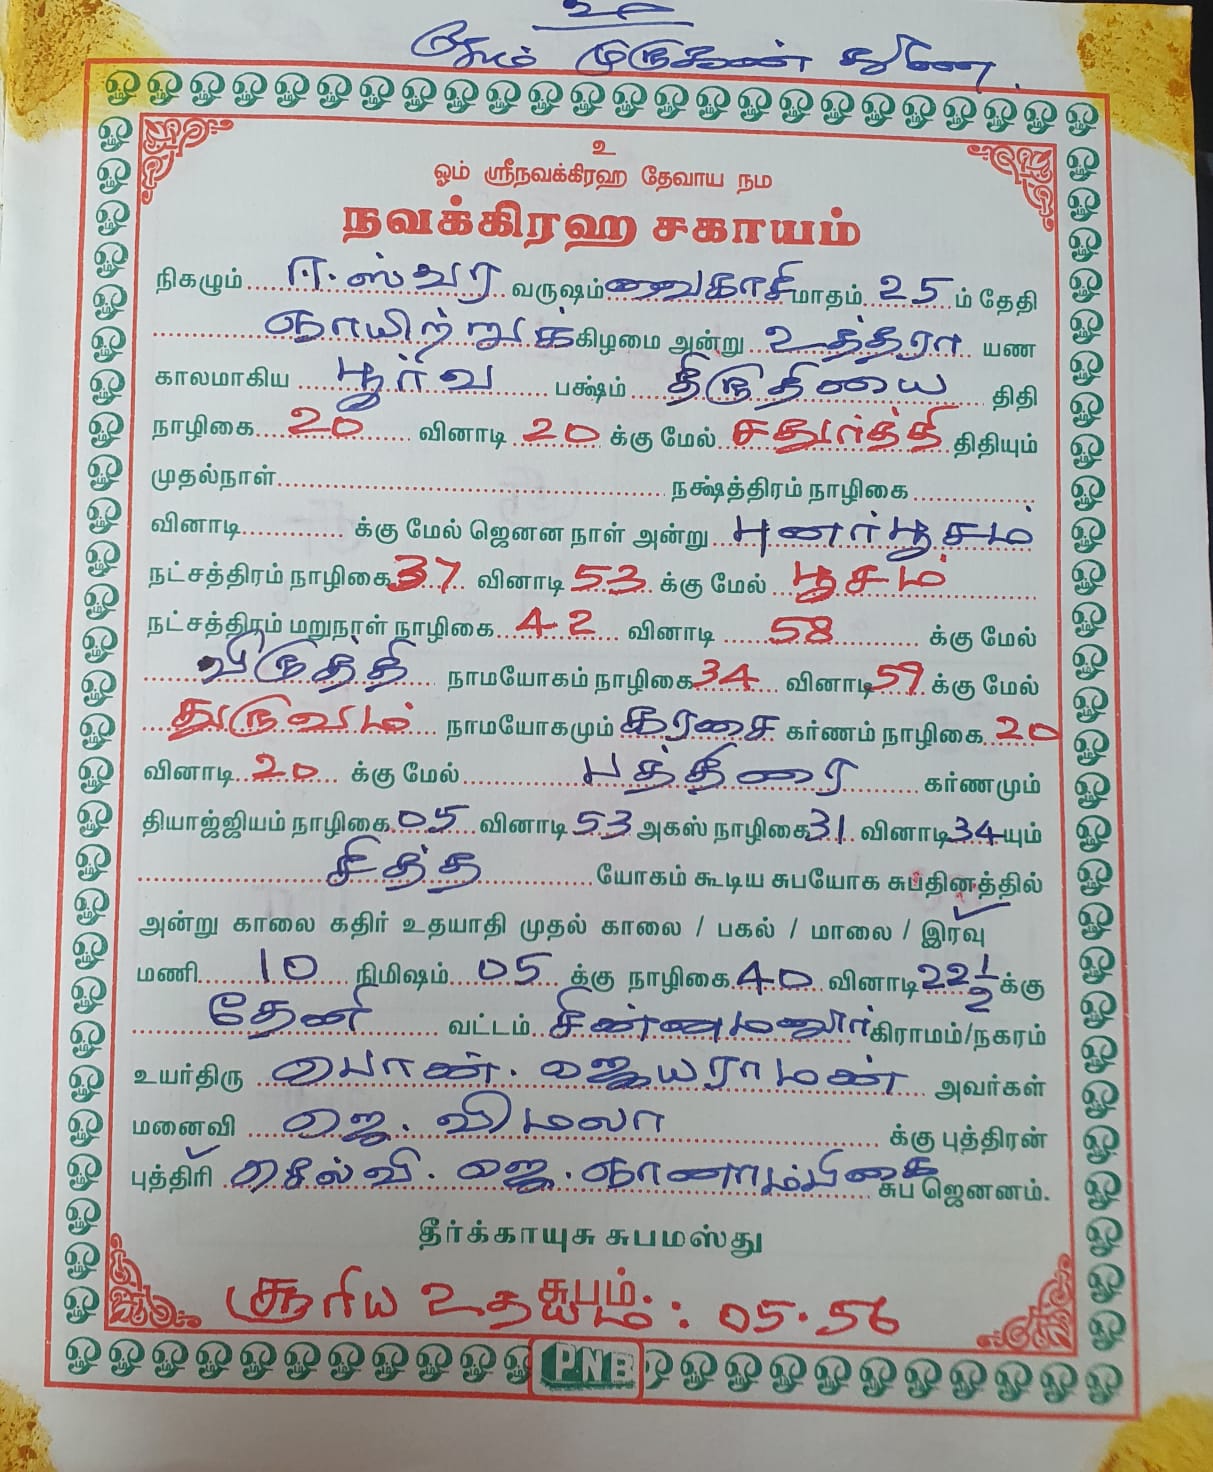 உ
ஓம் முருகன் துணை.
உ
ஓம் ஸ்ரீநவக்கிரஹ தேவாய நம
நவக்கிரஹ சகாயம்
நிகழும் ஈஸ்வர வருஷம் வைகாசி மாதம் 25 ம் தேதி
ஞாயிற்றுக்கிழமை அன்று உத்தரா யண
காலமாகிய பூர்வ பக்ஷம் திருதியை திதி
நாழிகை 20 வினாடி 20 க்கு மேல் சதுர்த்தி திதியும்
முதல்நாள் நக்ஷத்திரம் நாழிகை
வினாடி க்கு மேல் ஜெனன நாள் அன்று புனர்பூசம்
நட்சத்திரம் நாழிகை 37 வினாடி 53 க்கு மேல் பூசம்
நட்சத்திரம் மறுநாள் நாழிகை 42 வினாடி 58 க்கு மேல்
விருத்தி நாமயோகம் நாழிகை 34 வினாடி 59 க்கு மேல்
துருவம் நாமயோகமும் கரசை கர்ணம் நாழிகை 20
வினாடி 20 க்கு மேல் பத்திரை கர்ணமும்
தியாஜ்ஜியம் நாழிகை 05 வினாடி 53 அகஸ் நாழிகை 31 வினாடி 34 யும்
சித்த யோகம் கூடிய சுபயோக சுபதினத்தில்
அன்று காலை கதிர் உதயாதி முதல் காலை / பகல் / மாலை / இரவு
மணி 10 நிமிஷம் 05 க்கு நாழிகை 40 வினாடி 22 1/2 க்கு
தேனி வட்டம் சின்னமனூர் கிராமம்/நகரம்
உயர்திரு பொன். ஜெயராமன் அவர்கள்
மனைவி ஜெ. விமலா க்கு புத்திரன்
புத்திரி செல்வி. ஜெ. ஞானாம்பிகை சுப ஜெனனம்.
தீர்க்காயுசு சுபமஸ்து
சுபம்.
சூரிய உதயம் : 05.56
PNB